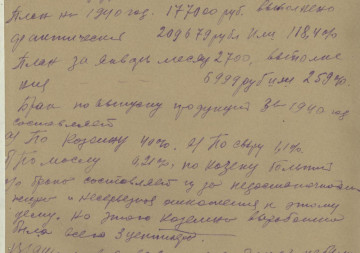 План на 1940 год. 177000 руб. выполнено
фактически 209679 руб или 118,4%
План за январь месяц 2700, выполне
ния 6999 руб или 259%
Брак по выпуску продукции за 1940 год
составляет
а) По Казеину 40%. 2) По сыру 61%
По маслу 0,21%. по казеину большой
брак составляет из за недостаточности
жиро и несерьезное отношения к этому
делу. Но этого Казеина выработано
было всего 3 центнера.